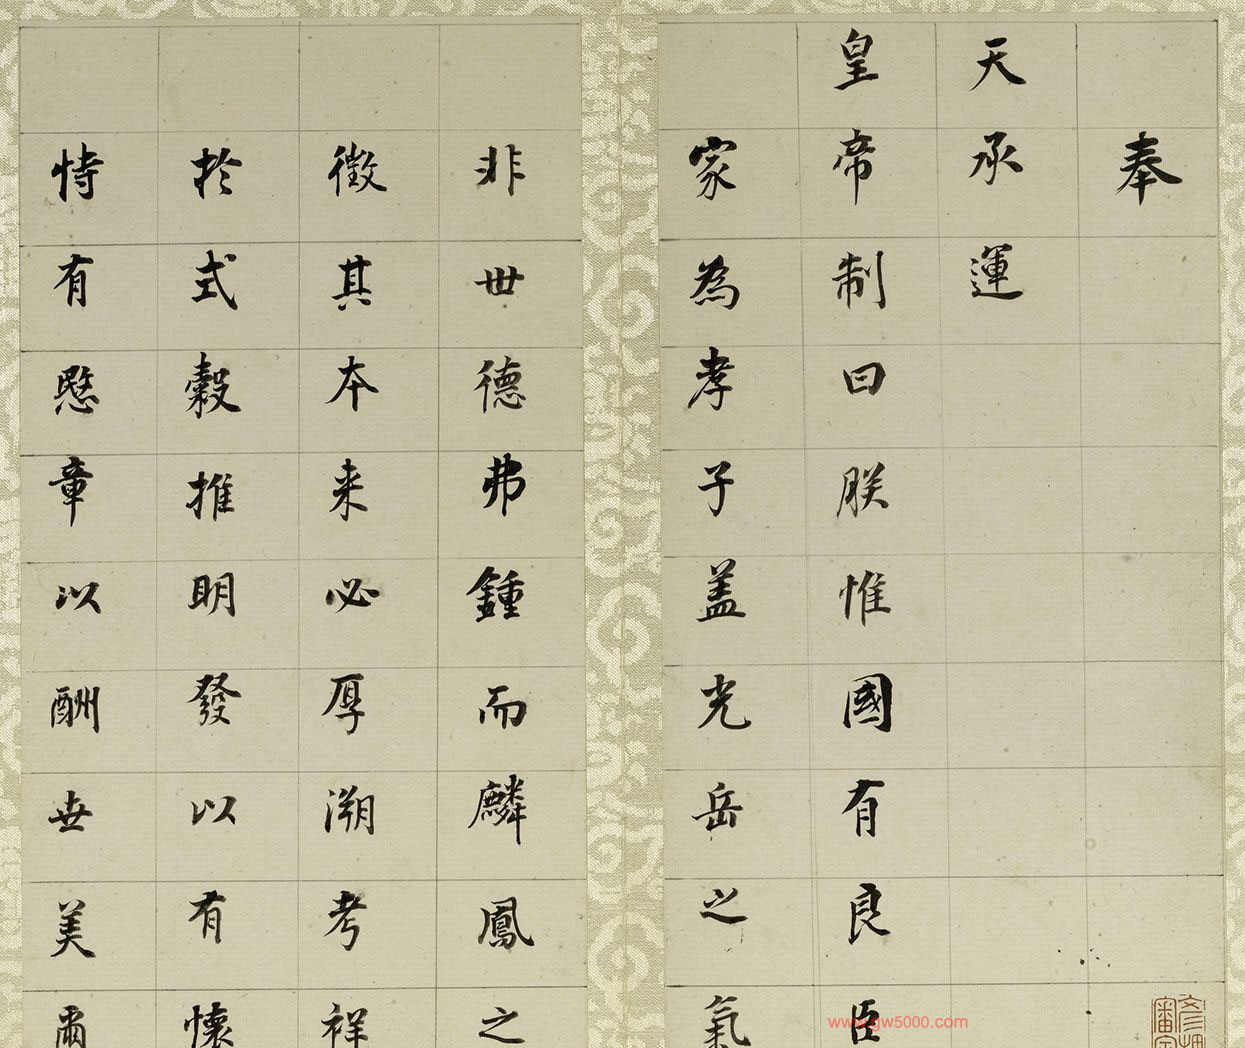 奉
天承運
皇帝制曰朕惟國有良臣
家為孝子盖光岳之氣
非世德弗鍾而麟鳳之
徵其本来必厚溯考祥
於式穀推明發以有懷
特有愍章以酬世美爾
www.gw5000.com